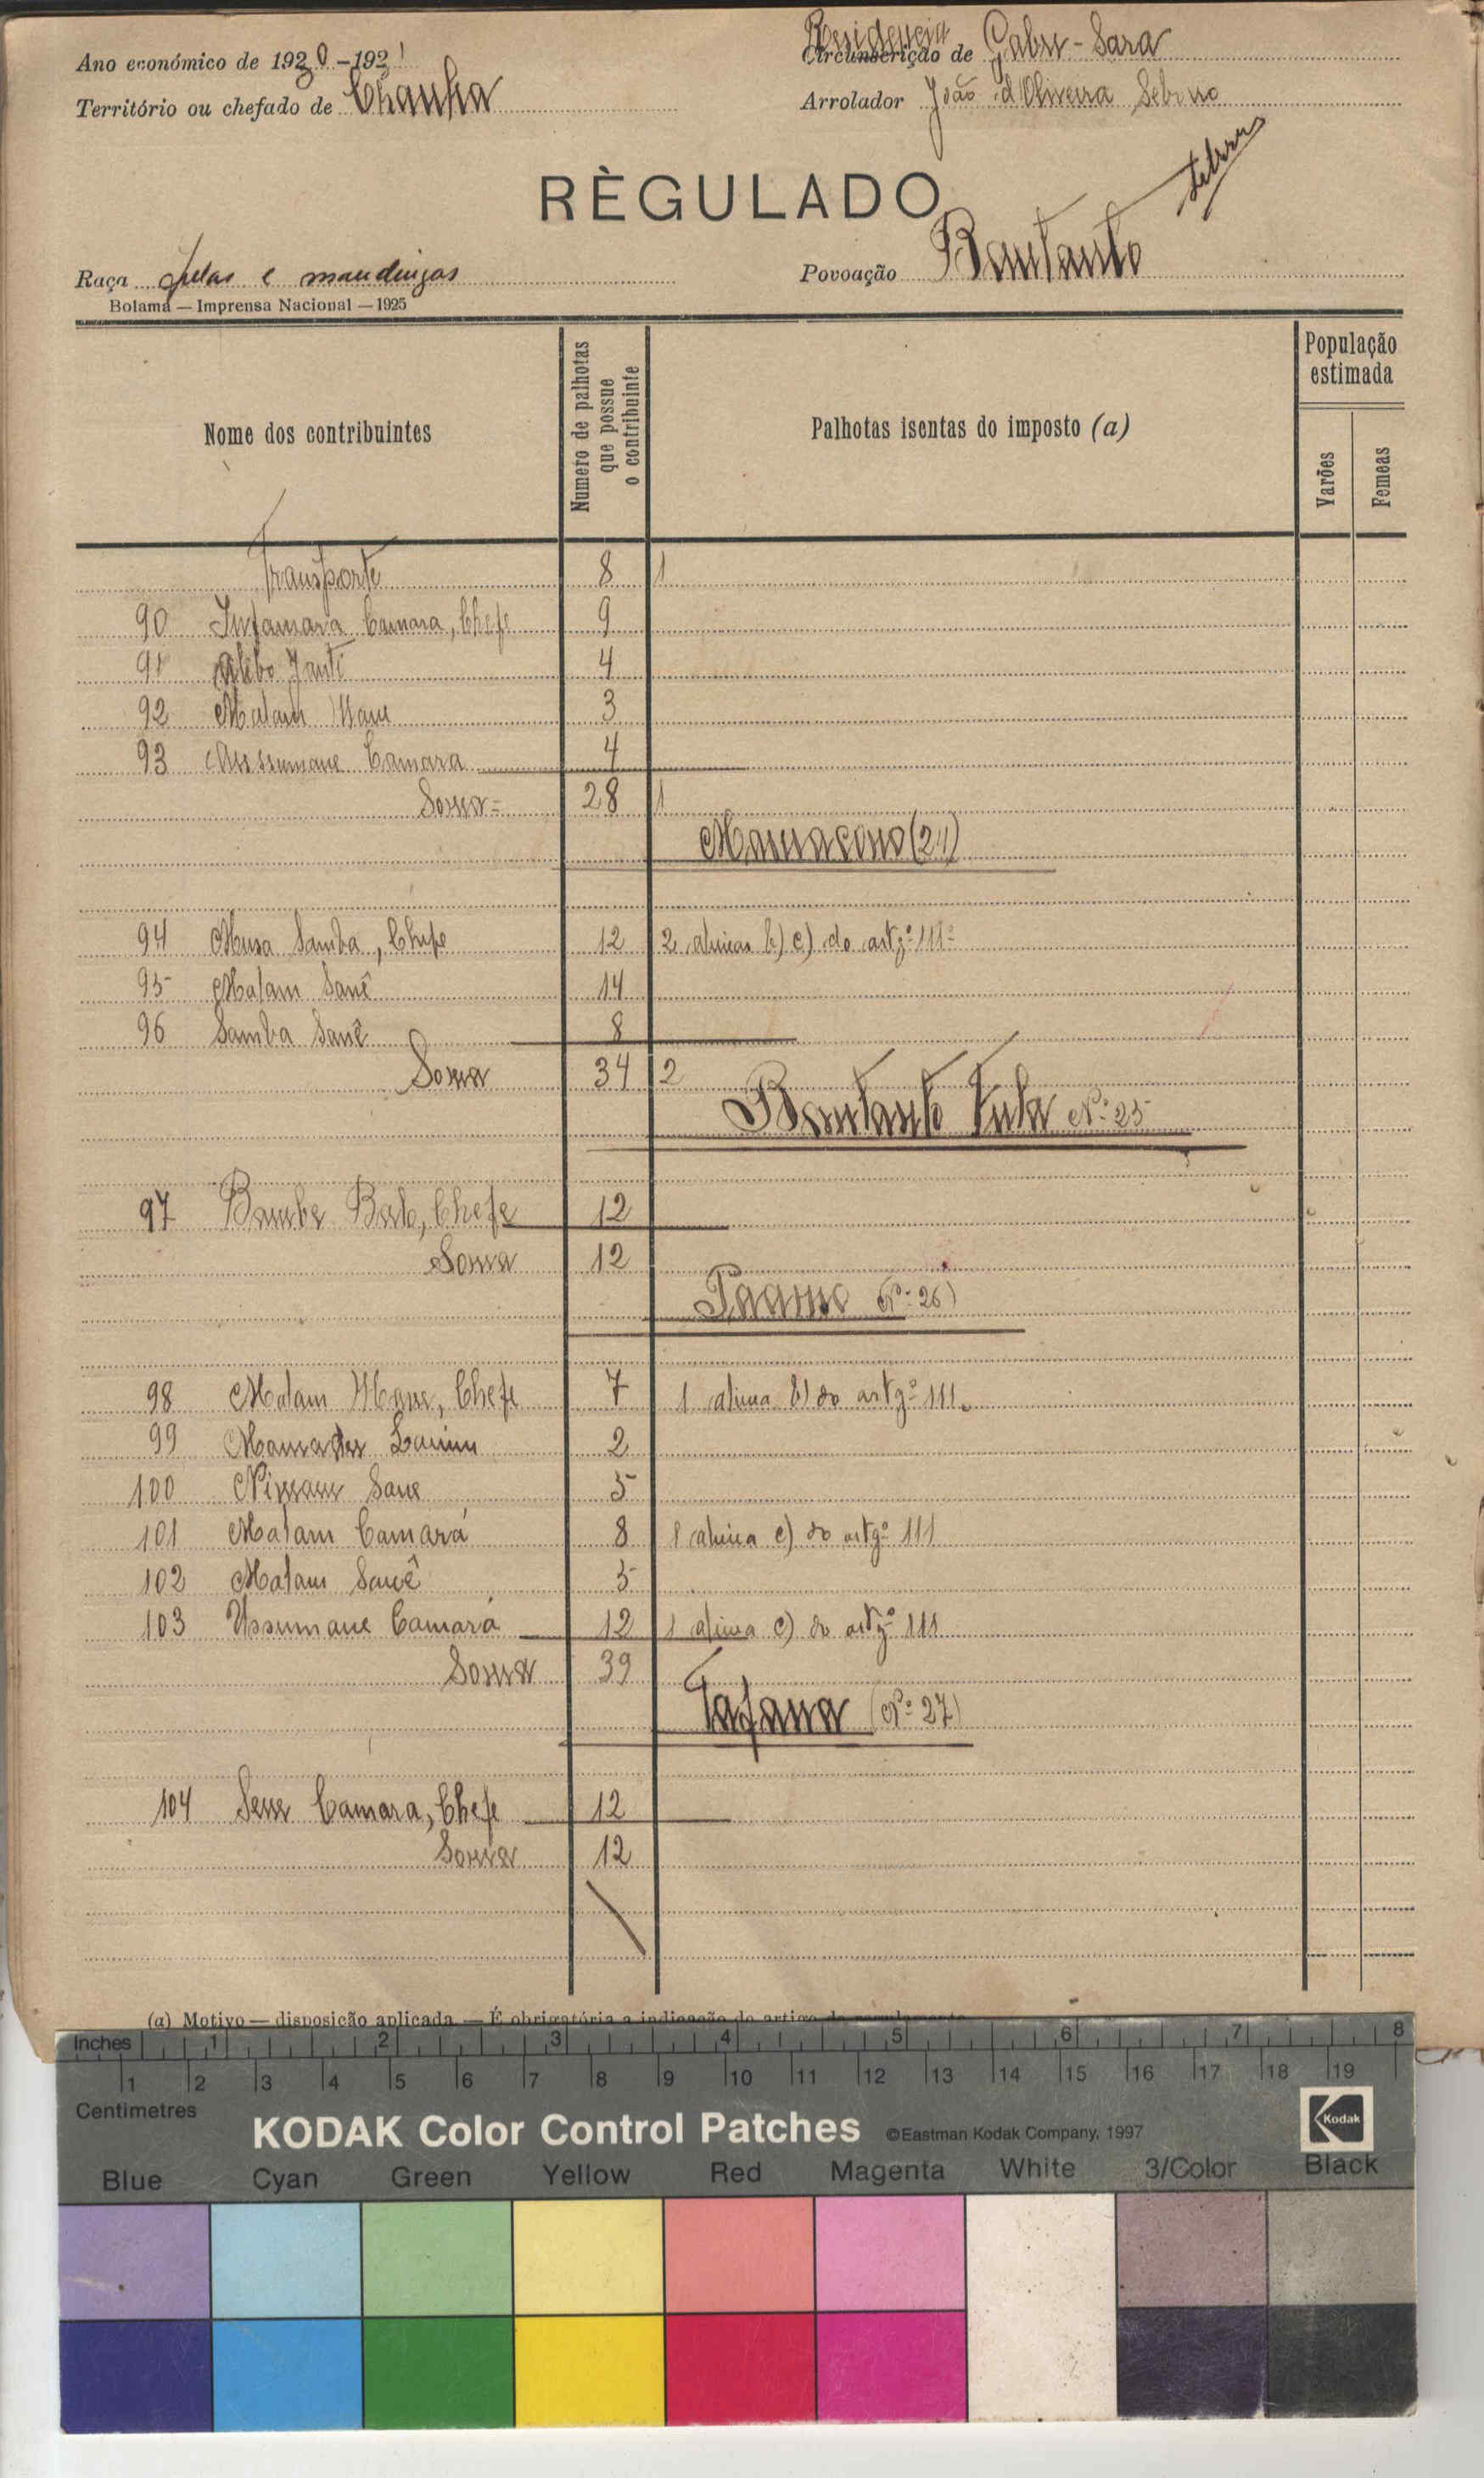 Ano económico de 1920-1921 Residencia Circunscrição de Gabu-Sara
Território ou chefado de Chanha Arrolador João d'Oliveira
RÈGULADO
Raça fulas e mandingas Povoação Bantanto
Bolama — Imprensa Nacional — 1925
Nome dos contribuintes
Numero de palhotas que possue o contribuinte
Palhotas isentas do imposto (a)
População estimada
Varões
Femeas
Transporte 8 1
90 Infamara Camara, Chefe 9
91 4
92 Malam Mane 3
93 Assumane Camara 4
Soma= 28 1
94 Musa Samba, Chefe 12 2 alineas b) c) do artgº 111º
95 Malam Sanê 14
96 Samba Sanê 8
Soma 34 2
Bantanto Fula Nº 25
97 Chefe 12
Soma 12
Nº 26)
98 Malam Mane, Chefe 7 1 alinea b) do artgº 111.
99 Mamadu 2
100 Sane 5
101 Malam Camará 8 1 alinea c) do artgº 111
102 Malam Sanê 5
103 Ussumane Camará 12 1 alinea c) do artgº 111
Soma 39
Tafana (Nº 27)
104 Camara, Chefe 12
Soma 12
(a) Motivo — disposição aplicada — É obrigatória a indicação do artigo do regulamento
Inches 1 2 3 4 5 6 7 8
1 2 3 4 5 6 7 8 9 10 11 12 13 14 15 16 17 18 19
Centimetres
KODAK Color Control Patches ©Eastman Kodak Company, 1997 Kodak
Blue Cyan Green Yellow Red Magenta White 3/Color Black